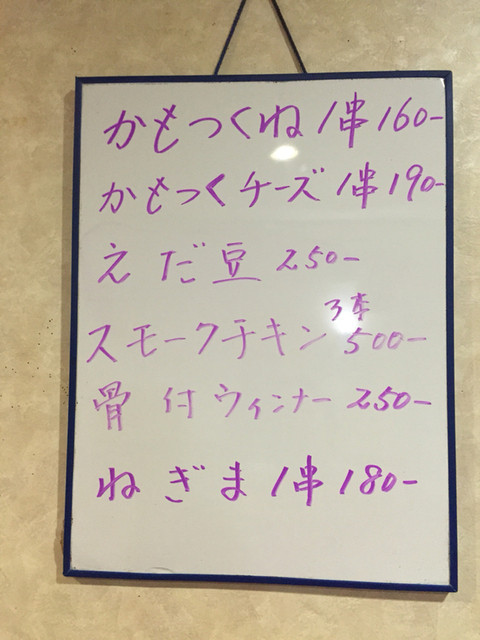 かもつくね 1串 160-
かもつくチーズ 1串 190-
えだ豆 250-
3本
スモークチキン 500-
骨付ウィンナー 250-
ねぎま 1串 180-